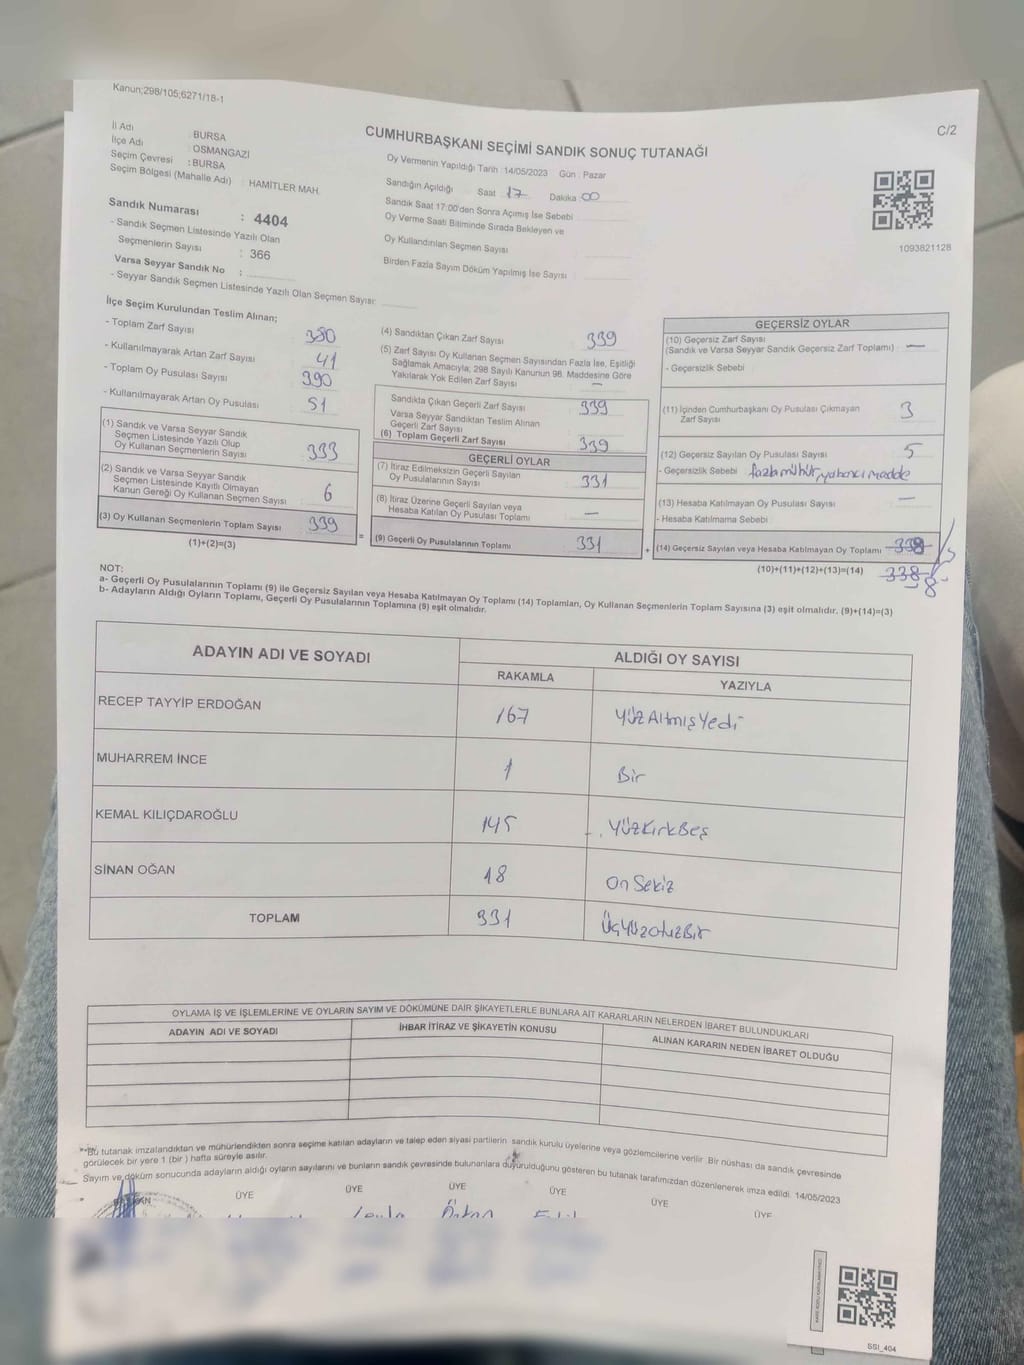 Kanun;298/105;6271/18-1
C/2
CUMHURBAŞKANI SEÇİMİ SANDIK SONUÇ TUTANAĞI
İl Adı : BURSA
İlçe Adı : OSMANGAZİ
Seçim Çevresi : BURSA
Seçim Bölgesi (Mahalle Adı) : HAMİTLER MAH.
Sandık Numarası : 4404
- Sandık Seçmen Listesinde Yazılı Olan
Seçmenlerin Sayısı : 366
Varsa Seyyar Sandık No :
- Seyyar Sandık Seçmen Listesinde Yazılı Olan Seçmen Sayısı:
Oy Vermenin Yapıldığı Tarih : 14/05/2023 Gün : Pazar
Sandığın Açıldığı Saat 17 Dakika 00
Sandık Saat 17:00'den Sonra Açılmış İse Sebebi
Oy Verme Saati Bitiminde Sırada Bekleyen ve
Oy Kullandırılan Seçmen Sayısı
Birden Fazla Sayım Döküm Yapılmış İse Sayısı
1093821128
İlçe Seçim Kurulundan Teslim Alınan;
- Toplam Zarf Sayısı 380
- Kullanılmayarak Artan Zarf Sayısı 41
- Toplam Oy Pusulası Sayısı 390
- Kullanılmayarak Artan Oy Pusulası 51
(1) Sandık ve Varsa Seyyar Sandık
Seçmen Listesinde Yazılı Olup
Oy Kullanan Seçmenlerin Sayısı 333
(2) Sandık ve Varsa Seyyar Sandık
Seçmen Listesinde Kayıtlı Olmayan
Kanun Gereği Oy Kullanan Seçmen Sayısı 6
(3) Oy Kullanan Seçmenlerin Toplam Sayısı 339
(1)+(2)=(3)
(4) Sandıktan Çıkan Zarf Sayısı 339
(5) Zarf Sayısı Oy Kullanan Seçmen Sayısından Fazla İse, Eşitliği
Sağlamak Amacıyla; 298 Sayılı Kanunun 98. Maddesine Göre
Yakılarak Yok Edilen Zarf Sayısı —
Sandıkta Çıkan Geçerli Zarf Sayısı 339
Varsa Seyyar Sandıktan Teslim Alınan
Geçerli Zarf Sayısı
(6) Toplam Geçerli Zarf Sayısı 339
GEÇERLİ OYLAR
(7) İtiraz Edilmeksizin Geçerli Sayılan
Oy Pusulalarının Sayısı 331
(8) İtiraz Üzerine Geçerli Sayılan veya
Hesaba Katılan Oy Pusulası Toplamı —
= (9) Geçerli Oy Pusulalarının Toplamı 331 +
GEÇERSİZ OYLAR
(10) Geçersiz Zarf Sayısı
(Sandık ve Varsa Seyyar Sandık Geçersiz Zarf Toplamı) : —
- Geçersizlik Sebebi
(11) İçinden Cumhurbaşkanı Oy Pusulası Çıkmayan
Zarf Sayısı 3
(12) Geçersiz Sayılan Oy Pusulası Sayısı 5
- Geçersizlik Sebebi fazla mühür, yabancı madde
(13) Hesaba Katılmayan Oy Pusulası Sayısı —
- Hesaba Katılmama Sebebi
(14) Geçersiz Sayılan veya Hesaba Katılmayan Oy Toplamı 338
(10)+(11)+(12)+(13)=(14) 338 8
NOT:
a- Geçerli Oy Pusulalarının Toplamı (9) ile Geçersiz Sayılan veya Hesaba Katılmayan Oy Toplamı (14) Toplamları, Oy Kullanan Seçmenlerin Toplam Sayısına (3) eşit olmalıdır. (9)+(14)=(3)
b- Adayların Aldığı Oyların Toplamı, Geçerli Oy Pusulalarının Toplamına (9) eşit olmalıdır.
ADAYIN ADI VE SOYADI
ALDIĞI OY SAYISI
RAKAMLA YAZIYLA
RECEP TAYYİP ERDOĞAN 167 YüzAltmışYedi
MUHARREM İNCE 1 Bir
KEMAL KILIÇDAROĞLU 145 YüzKırkBeş
SİNAN OĞAN 18 OnSekiz
TOPLAM 331 ÜçYüzotuzBir
OYLAMA İŞ VE İŞLEMLERİNE VE OYLARIN SAYIM VE DÖKÜMÜNE DAİR ŞİKAYETLERLE BUNLARA AİT KARARLARIN NELERDEN İBARET BULUNDUKLARI
ADAYIN ADI VE SOYADI İHBAR İTİRAZ VE ŞİKAYETİN KONUSU ALINAN KARARIN NEDEN İBARET OLDUĞU
Bu tutanak imzalandıktan ve mühürlendikten sonra seçime katılan adayların ve talep eden siyasi partilerin sandık kurulu üyelerine veya gözlemcilerine verilir. Bir nüshası da sandık çevresinde
görülecek bir yere 1 (bir) hafta süreyle asılır.
Sayım ve döküm sonucunda adayların aldığı oyların sayılarını ve bunların sandık çevresinde bulunanlara duyurulduğunu gösteren bu tutanak tarafımızdan düzenlenerek imza edildi. 14/05/2023
BAŞKAN ÜYE ÜYE ÜYE ÜYE ÜYE ÜYE
SSI_404